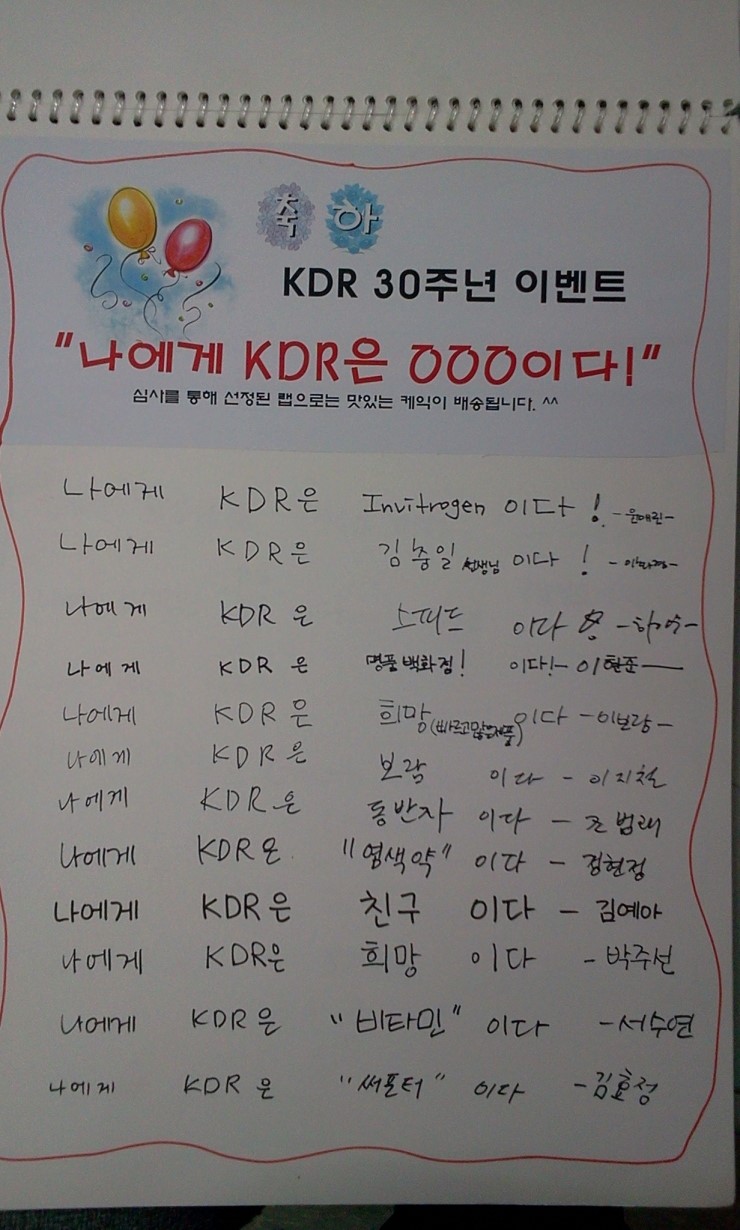 축하
KDR 30주년 이벤트
"나에게 KDR은 OOO이다!"
심사를 통해 선정된 랩으로는 맛있는 케익이 배송됩니다. ^^
나에게 KDR은 Invitrogen 이다! -윤애린-
나에게 KDR은 김충일 선생님 이다! -
나에게 KDR은 스피드 이다
나에게 KDR은 명품 백화점! 이다! - 이현준
나에게 KDR은 희망 (빠르고많은제품) 이다 -이보람-
나에게 KDR은 보람 이다 - 이지철
나에게 KDR은 동반자 이다 - 조범래
나에게 KDR은 "염색약" 이다 - 정현정
나에게 KDR은 친구 이다 - 김예아
나에게 KDR은 희망 이다 - 박주선
나에게 KDR은 "비타민" 이다 - 서수연
나에게 KDR은 "써포터" 이다 - 김효정